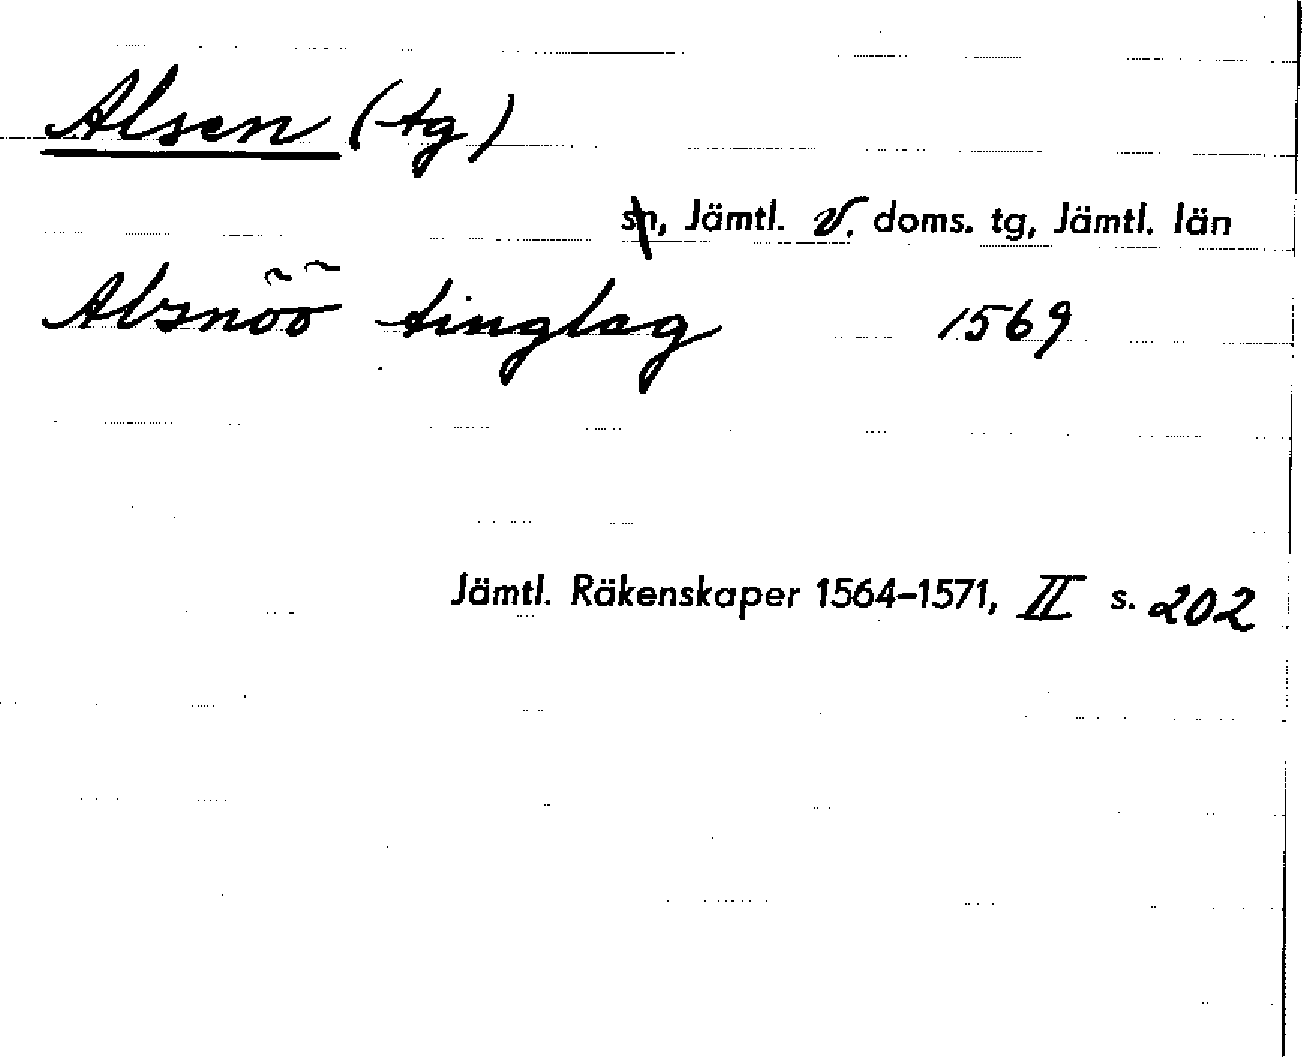 Alsen (tg)
sn, Jämtl. v. doms. tg, Jämtl. län
Alsnõõ tinglag 1569
Jämtl. Räkenskaper 1564–1571, II s. 202